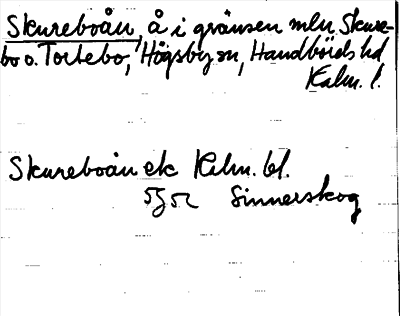 Skureboån, å i gränsen mln Skure-
bo o. Tortebo, Högsby sn, Handbörds hd
Kalm. l.
Skureboån ek Kalm. bl.
5J5c Sinnerskog